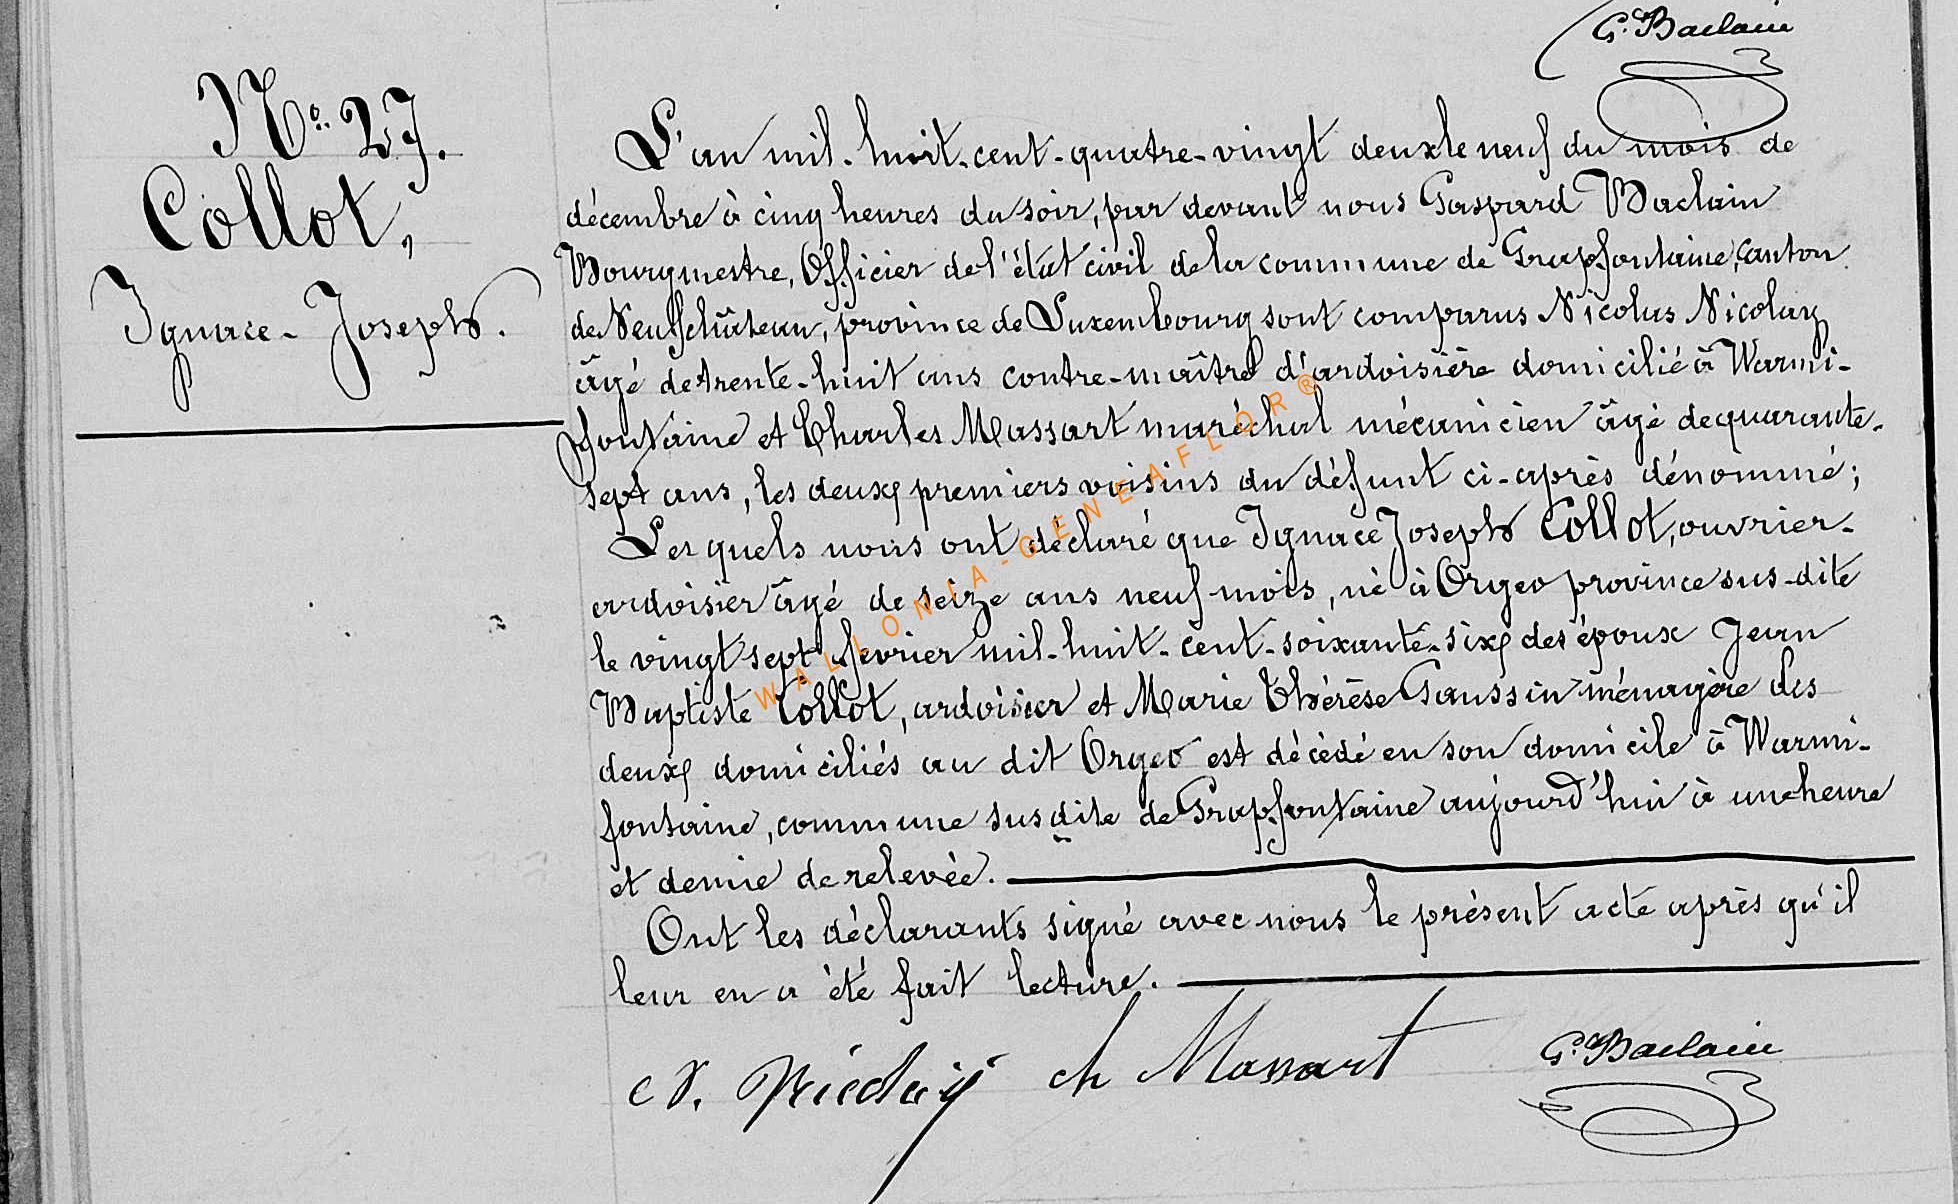 G. Baclain
N° 27.
Collot,
Ignace-Joseph.
L'an mil-huit-cent-quatre-vingt deux le neuf du mois de
décembre à cinq heures du soir, par devant nous Gaspard Baclain
Bourgmestre, Officier de l'état civil de la commune de Grapfontaine, canton
de Neufchâteau, province de Luxembourg sont comparus Nicolas Nicolay
âgé de trente-huit ans contre-maître d'ardoisière domicilié à Warmi-
fontaine et Charles Massart maréchal mécanicien âgé de quarante-
sept ans, les deux premiers voisins du défunt ci-après dénommé;
Les quels nous ont déclaré que Ignace Joseph Collot, ouvrier-
ardoisier âgé de seize ans neuf mois, né à Orgeo province sus-dite
le vingt sept fevrier mil-huit-cent-soixante-six des époux Jean
Baptiste Collot, ardoisier et Marie Thérèse Gaussin ménagère des
deux domiciliés au dit Orgeo est décédé en son domicile à Warmi-
fontaine, commune susdite de Grapfontaine aujourd'hui à une heure
et demie de relevée.
Ont les déclarants signé avec nous le présent acte après qu'il
leur en a été fait lecture.
N. Nicolaÿ ch Massart G. Baclain
WALLONIA-GENEAFLOR®